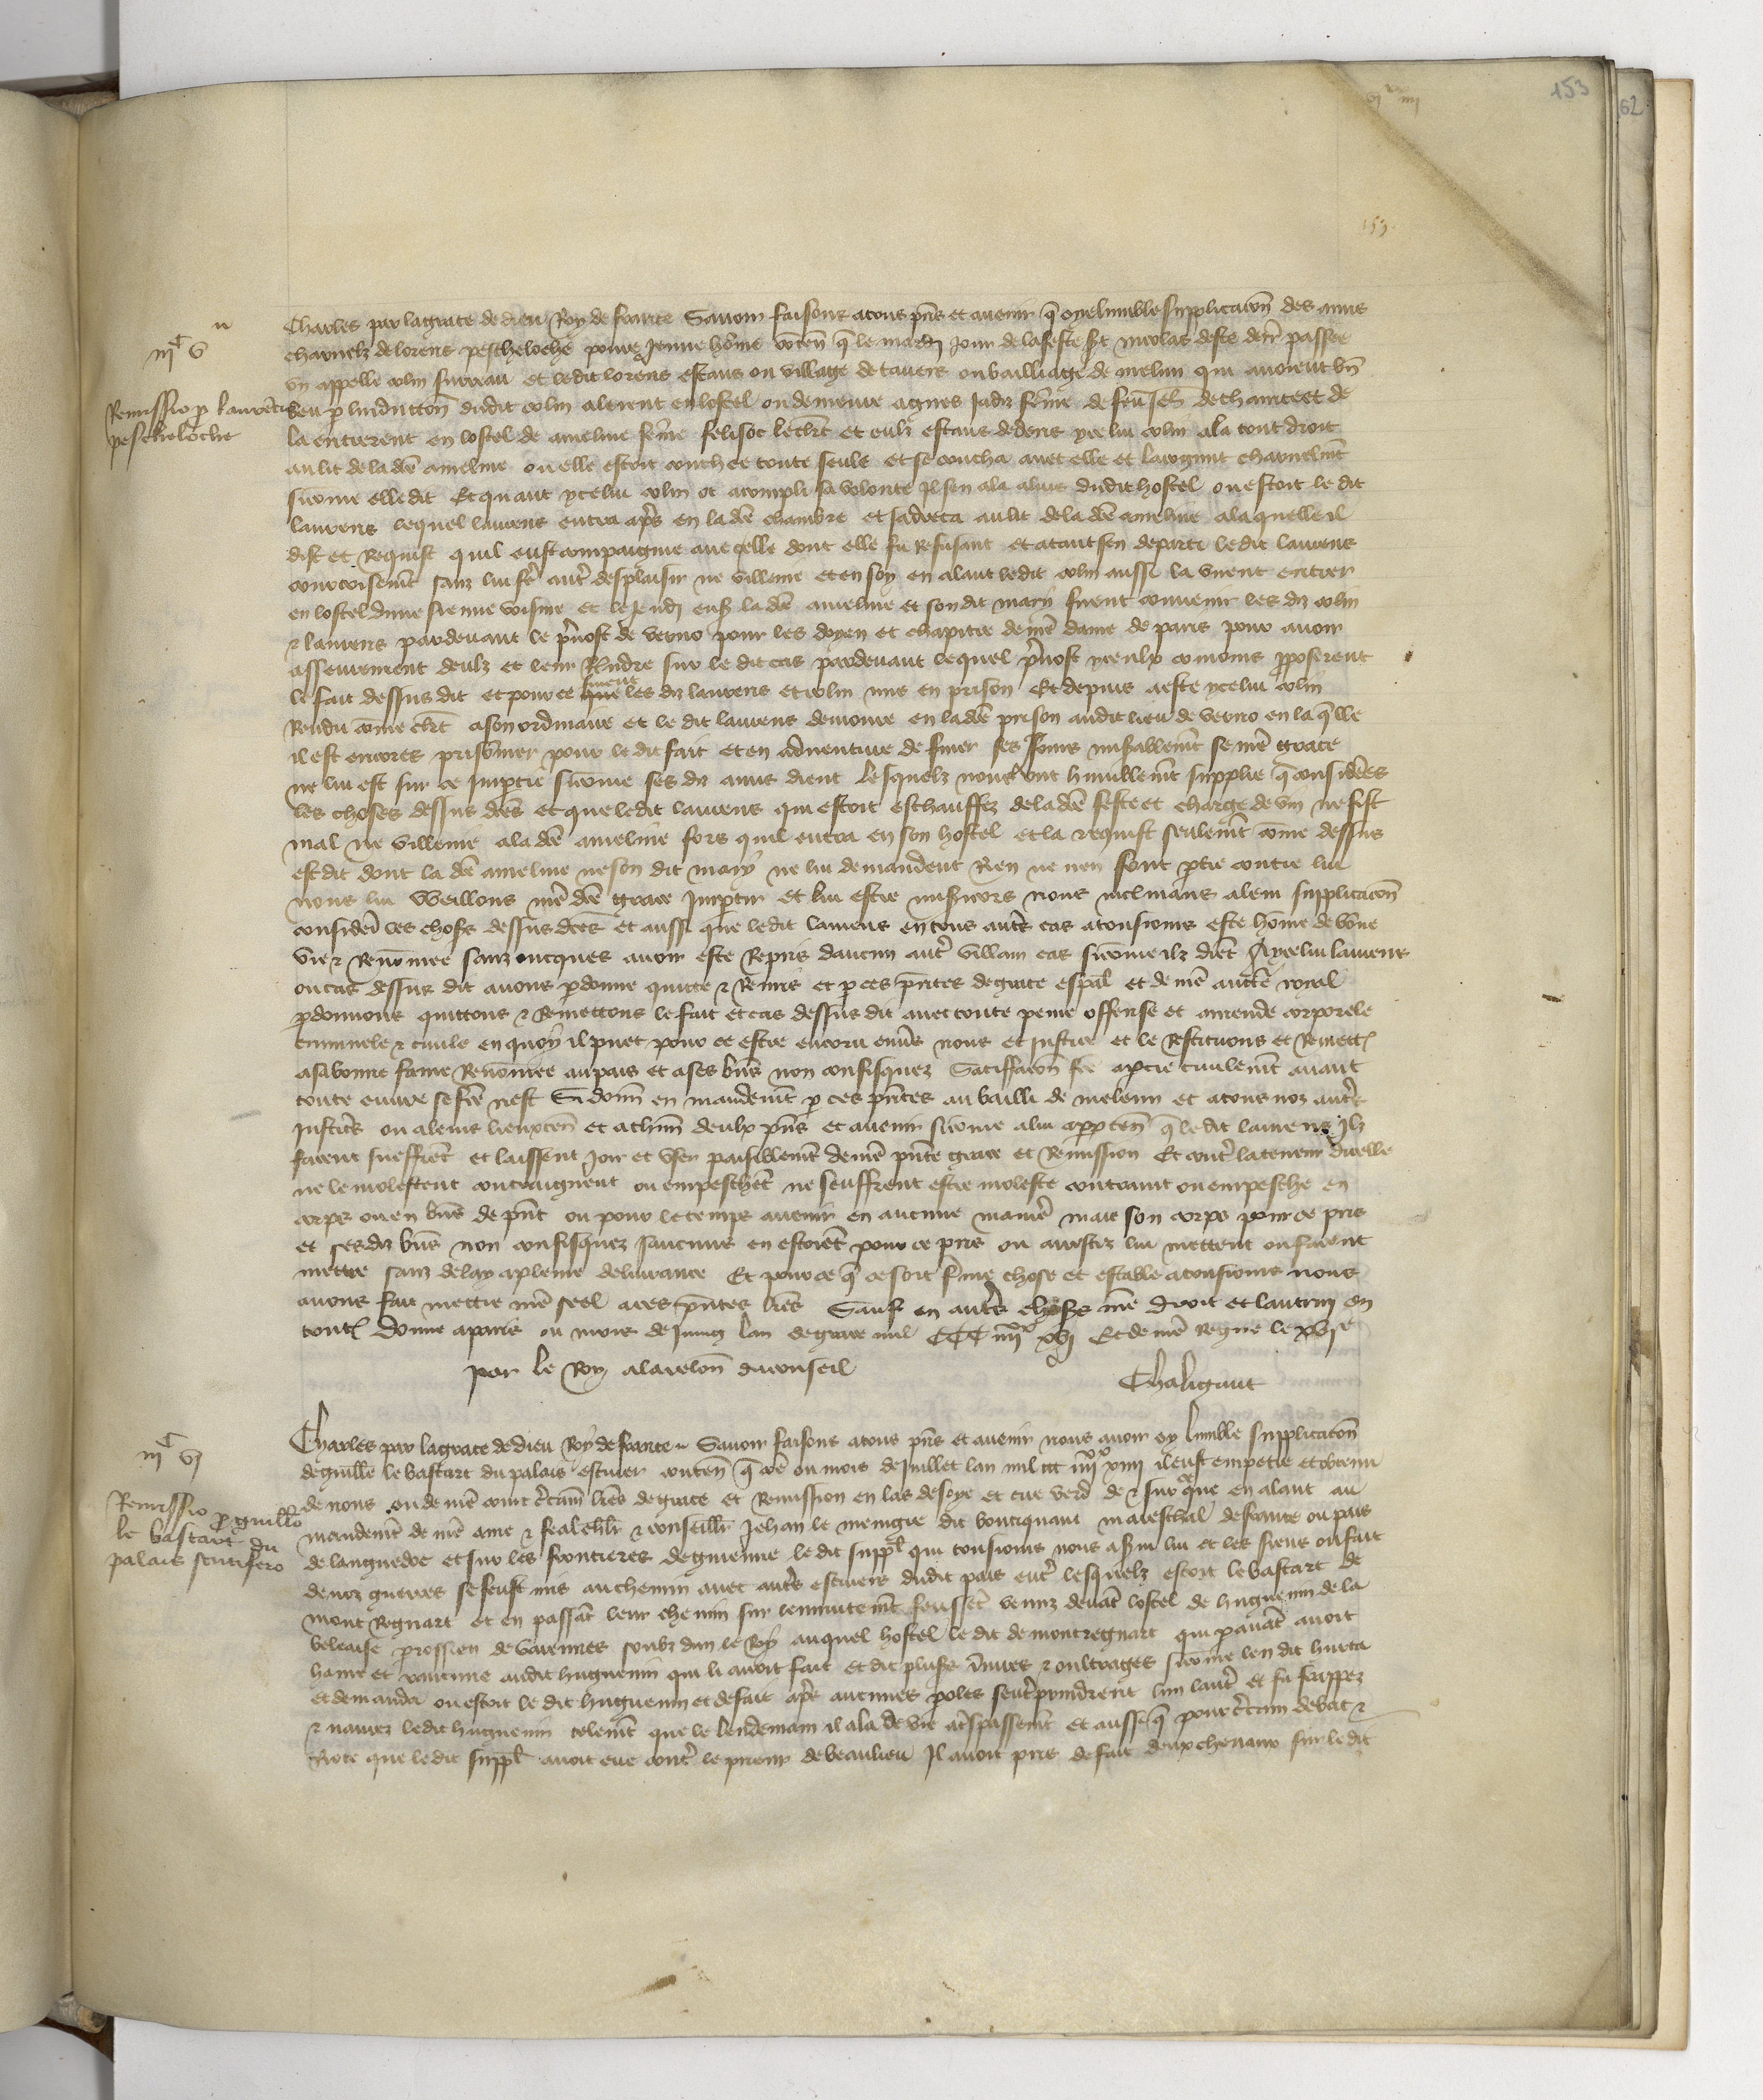 153
62
153
iijᶜ v
Remissio p̱ laurēcio
pescheloche
Charles par la grace de dieu Roy de france Sauoir faisons a tous p̄ns et auenir q̄ oye lumble supplicacōn des amis
charnelz de lorens pescheloche poure Jeune hōme contēn q̄ le mardj jour de la feste sᵗ nicolas deste den̄r passee
vn appelle colin et ledit lorens estans ou village de tauers ou bailliage de melun qui auoient bn̄
beu p̱ linduccōn dudit colin alerent en lostel ou demeure agnes Jadiz fēme de feu de chamteet de
la entrerent en lostel de ameline fēme felisot et eulz estans dedens ycelui colin ala tout droit
au lit de lad̄ce ameline ou elle estoit couchee toute seule et se coucha auec elle et la congnut charnelmēt
si cōme elle dit Et quant ycelui colin ot acompli sa volente Il sen ala a luis dudit hostel ou estoit le dit
laurens lequel laurens entra ap̄s en lad̄ce chambre et sadreca au lit de lad̄ce ameline a laquelle il
dist et Requist quil eust compaignie auec elle dont elle fu Refusant et atant sen departi le dit laurens
courtoisemēt sanz lui fē aut̄ desplaisir ne villenie et en soy en alant ledit colin aussi la virent entrer
en lostel dune sienne voisine et le Jeudj ens̄ lad̄ce ameline et son dit mary firent conuenir les diz colin
⁊ laurens pardeuant le p̄uost de verno pour les doyen et chapitre de n̄re dame de paris pour auoir
asseurement deulz et leur Rn̄dre sur le dit cas pardeuant lequel p̄uost yceulx conioins p̱poserent
le fait dessus dit et pour ce furent les diz laurens et colin mis en prison Et depuis a este ycelui colin
Rendu cōme clērc a son ordinaire et le dit laurens demoure en lad̄ce prison audit lieu de verno en la q̄lle
il est encores prisonnier pour le dit fait et en aduenture de finer ses Jours mis̄ablemēt se n̄re grace
ne lui est sur ce Imp̱tie si cōme ses diz amis dient lesquelz nous ont humblemēt supplie q̄ consideres
les choses dessus d̄ces et que ledit laurens qui estoit eschauffez de lad̄ce feste et charge de vin ne fist
mal ne villenie a lad̄ce ameline fors quil entra en son hostel et la requist seulemēt cōme dessus
est dit dont lad̄ce ameline ne son dit mary ne lui demandent Rien ne nen font p̱tie contre lui
nous lui vueillons n̄re d̄ce grace Imp̱tir et lui estre mis̄icors nous inclinans a leur supplicacōn
consider̄ les choses dessus d̄ces et aussi que ledit laurens en tous aut̄s cas a tousiours este hōme de bōne
vie ⁊ Renōmee sanz oncques auoir este Repris daucun aut̄ villain cas si cōme ilz diēt A ycelui laurens
ou cas dessus dit auons p̱donne quitte ⁊ Remis et p̱ ces p̄ntes de grace esp̄al et de n̄re auctēe royal
p̱donnons quittons ⁊ Remettons le fait et cas dessus dit auec toute peine offense et amende corporele
criminele ⁊ ciuile en quoy il puet pour ce estre encoru en̄us nous et Justice et le Restituons et Remett̄
a sa bonne fame Renōmee au pais et a ses biēs non confisquez Satiffacōn fcē a p̱tie ciuilemēt auant
toute euure se fcē nest Si donn̄ en mandemēt p̱ ces p̄ntes au bailli de melenn et a tous noz aut̄s
Justic̄s ou a leurs lieuxten̄ et a chūn deulx p̄ns et auenir si cōme a lui app̱ten̄ q̄ ledit laurens Ilz
facent suefferēt et laissent Joir et vser paisiblemēt de n̄re p̄nte grace et Remission Et cont̄ la teneur dicelle
ne le molestent contraignent ou empeschēt ne seuffrent estre moleste contraint ou empesche en
corps ou en biēs de p̄nt ou pour le temps auenir en aucune manie mais son corps pour ce pris
et ses diz biēs non confisquez saucuns en estoiēt pour ce pris ou arrestez lui mettent ou facent
mettre sanz delay a pleine deliurance Et pour ce q̄ ce soit fme chose et estable a tousiours nous
auons fait mettre n̄re seel a ces p̄ntes l̄res Sauf en aut̄s choses n̄re droit et lautruj en
tout̄ Donne a paris ou mois de Juing lan de grace mil CCC iiijˣˣ xvj Et de n̄re Regne le xvjᵉ
par le Roy a la relon̄ du conseil
Chaligaut
iijᶜ vj
Remissio p̱ guill̄o
le bastart du
palais scutifero
Charles par la grace de dieu Roy de france Sauoir faisons a tous p̄ns et auenir nous auoir oy lumble supplicacōn
de guill̄e le bastart du palais escuier contēn q̄ cōe ou mois de Juillet lan mil ccc iiijˣˣ xiiij il eust empetre et obtenu
de nous ou de n̄re court c̄taines l̄res de grace et Remission en las de soye et cire vert de ⁊ sur q̄ que en alant au
mandemēt de n̄re ame ⁊ feal chl̄r ⁊ conseill̄r Jehan le meingre dit bouciquaut mareschal de france ou pais
de languedoc et sur les frontieres de guienne le dit suppl̄ qui tousiours nous a s̄ui lui et les siens ou fait
de noz guerres se feust mis au chemin auec aut̄s escuiers dudit pais ent̄ lesquelz estoit le bastart de
mont Regnart et en passāt leur chemin sur feussēt venuz deuāt lostel de huguenin de la
p̱rossien de varennes soubz dun le Roy auquel hostel le dit de montregnart qui p̱auāt auoit
hayne et rancune audit huguenin qui li auoit fait et dit plus̄s Iniures ⁊ oultrages si cōme len dit hurta
et demanda ou estoit le dit huguenin et de fait ap̄s aucunes p̱oles sent̄prindrent lun laut̄ et fu frappez
⁊ naurez ledit huguenin telemēt que le lendemain il ala de vie a t̄spassemēt et aussi q̄ pour c̄tain debat ⁊
Riote que le dit suppl̄ auoit eue cont̄ le prieur de beaulieu Il auoit pris de fait deux cheuaux sur le dit